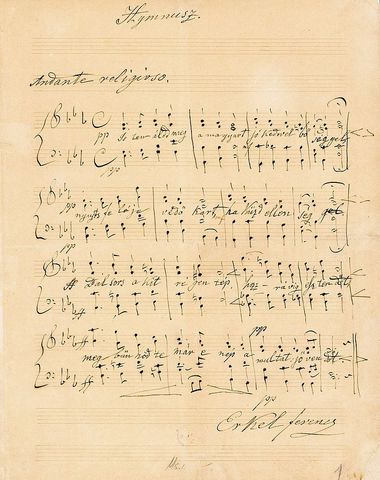 Hymnusz.
Andante religioso.
pp Is ten áldd meg a magyart jó kedvel bő séggel
pp
pp nyújts fe lé je védő kart, ha küzd ellen ség gel
pp
ff Bal sors a kit ré gen tép, hoz rá víg esz ten dőt
ff
ppp
ff meg bűn hőd te már e nép a multat s jöven dőt
ff
pp
Erkel Ferencz